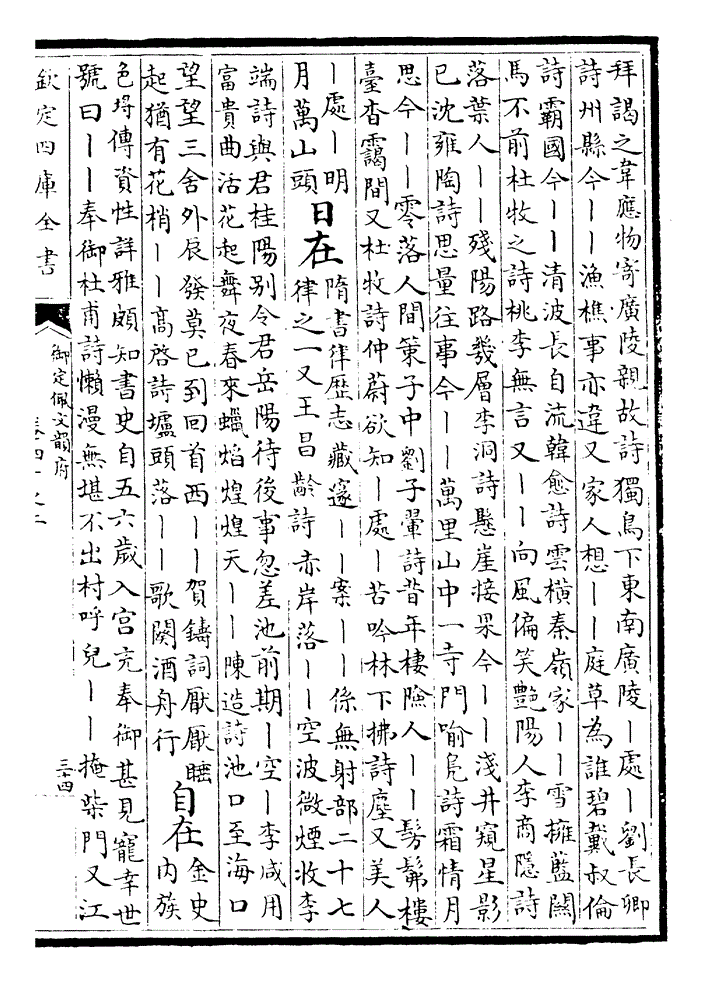 拜謁之韋應物寄廣陵親故詩獨鳥下東南廣陵丨處丨劉長卿
詩州縣今丨丨漁樵事亦違又家人想丨丨庭草為誰碧戴叔倫
詩霸國今丨丨清波長自流韓愈詩雲橫秦嶺家丨丨雪擁藍關
馬不前杜牧之詩桃李無言又丨丨向風偏笑艷陽人李商隱詩
落葉人丨丨殘陽路幾層李洞詩懸崖接果今丨丨淺井窺星影
已沈雍陶詩思量往事今丨丨萬里山中一寺門喻凫詩霜情月
思今丨丨零落人間策子中劉子翬詩昔年樓險人丨丨髣髴樓
臺杳靄間又杜牧詩仲蔚欲知丨處丨苦吟林下拂詩塵又美人
丨處丨明
月萬山頭
日在
隋書律歷志藏邃丨丨案丨丨係無射部二十七
律之一又王昌齡詩赤岸落丨丨空波微煙收李
端詩與君桂陽別令君岳陽待後事忽差池前期丨空丨李咸用
富貴曲活花起舞夜春來蠟焰煌煌天丨丨陳造詩池口至海口
望望三舍外辰發莫已到回首西丨丨賀鑄詞厭厭睡
起猶有花梢丨丨高啓詩壚頭落丨丨歌闋酒舟行
自在
金史
內族
色埒傳資性詳雅頗知書史自五六歲入宮充奉御甚見寵幸世
號曰丨丨奉御杜甫詩懶漫無堪不出村呼兒丨丨掩柴門又江
欽定四庫全書
御定佩文韻府
三十四